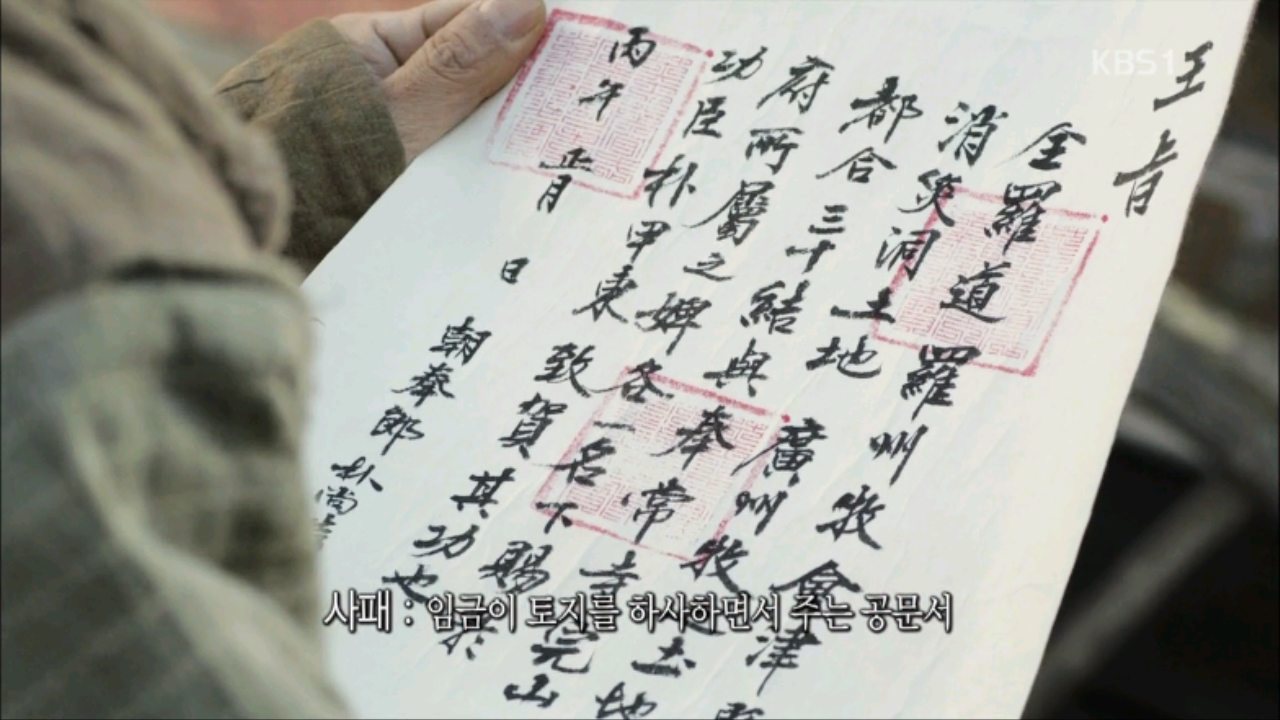 王旨
全羅道 羅州牧 會津
消災洞 土地 廣州牧 土地
都合 三十結與 奉常寺 完山
府所屬之婢各一名下賜 於
功臣 朴甲東 致賀其功也
丙午 正月 日 朝奉郎 朴尚
KBS1
사패 : 임금이 토지를 하사하면서 주는 공문서